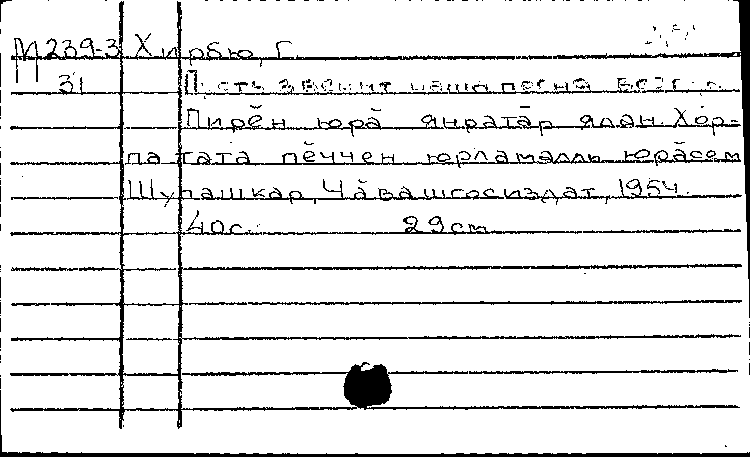 М 239-3 Хирбю, Г.
31 Пусть звенит наша песня везде.
Пирӗн юрӑ янратӑр ялан. Хор-
па тата пӗччен юрламалли юрӑсем
Шупашкар, Чӑвашгосиздат, 1954.
40с. 29cm